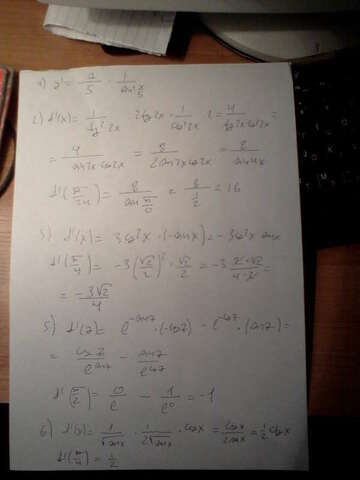 1) y' = 2/5 · 1/sin² x/5
2) f'(x) = 1/tg² 2x · 2tg2x · 1/cos² 2x · 2 = 4/tg2x·cos²2x =
= 4/sin2x cos2x = 8/2sin2x cos2x = 8/sin4x
f'(π/24) = 8/sin π/6 = 8/(1/2) = 16
3) f'(x) = 3cos²x · (-sinx) = -3cos²x sinx
f'(π/4) = -3(√2/2)² · √2/2 = -3 2·√2/4·2 =
= -3√2/4
5) f'(z) = e^(-sinz) · (-cosz) - e^(-cosz) · (sinz) =
= cosz/e^(sinz) - sinz/e^(cosz)
f'(π/2) = 0/e - 1/e⁰ = -1
6) f'(x) = 1/√sinx · 1/2√sinx · cosx = cosx/2sinx = 1/2 ctgx
f'(π/4) = 1/2